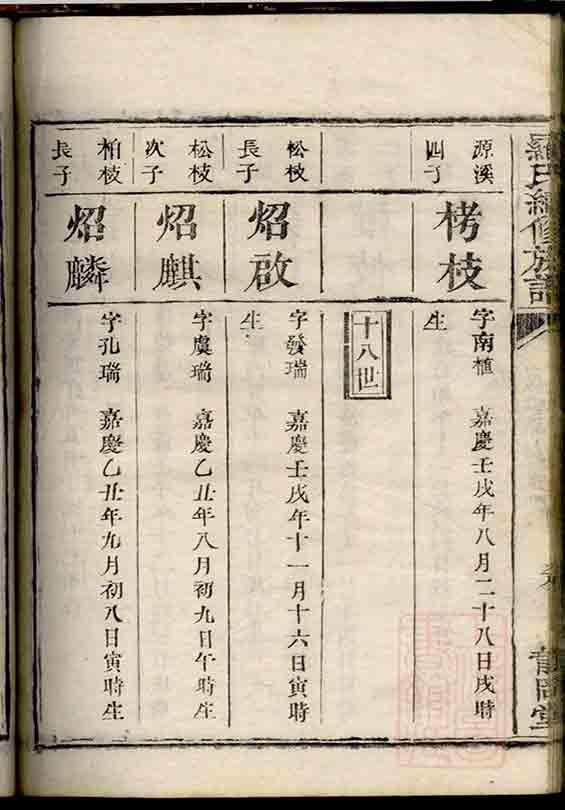 羅氏續修族譜
源溪
四子
栲枝
字南植 嘉慶壬戌年八月二十八日戌時
生
十八世
松枝
長子
炤啟
字發瑞 嘉慶壬戌年十一月十六日寅時
生
松枝
次子
炤麒
字虞瑞 嘉慶乙丑年八月初九日午時生
柏枝
長子
炤麟
字孔瑞 嘉慶乙丑年九月初八日寅時生